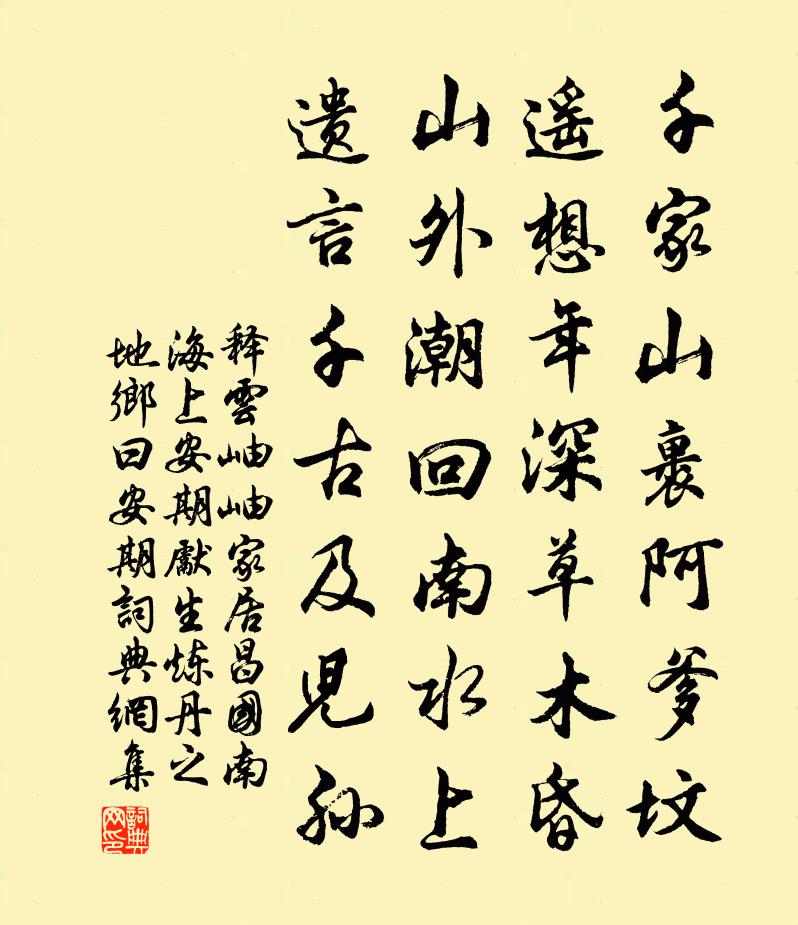 千家山裏阿爹坟
遥想年深草木昏
山外潮回南水上
遗言千古及児孙
释雲岫岫家居昌國南
海上安期獻生炼丹之
地鄉曰安期詞典網集
詞典网印